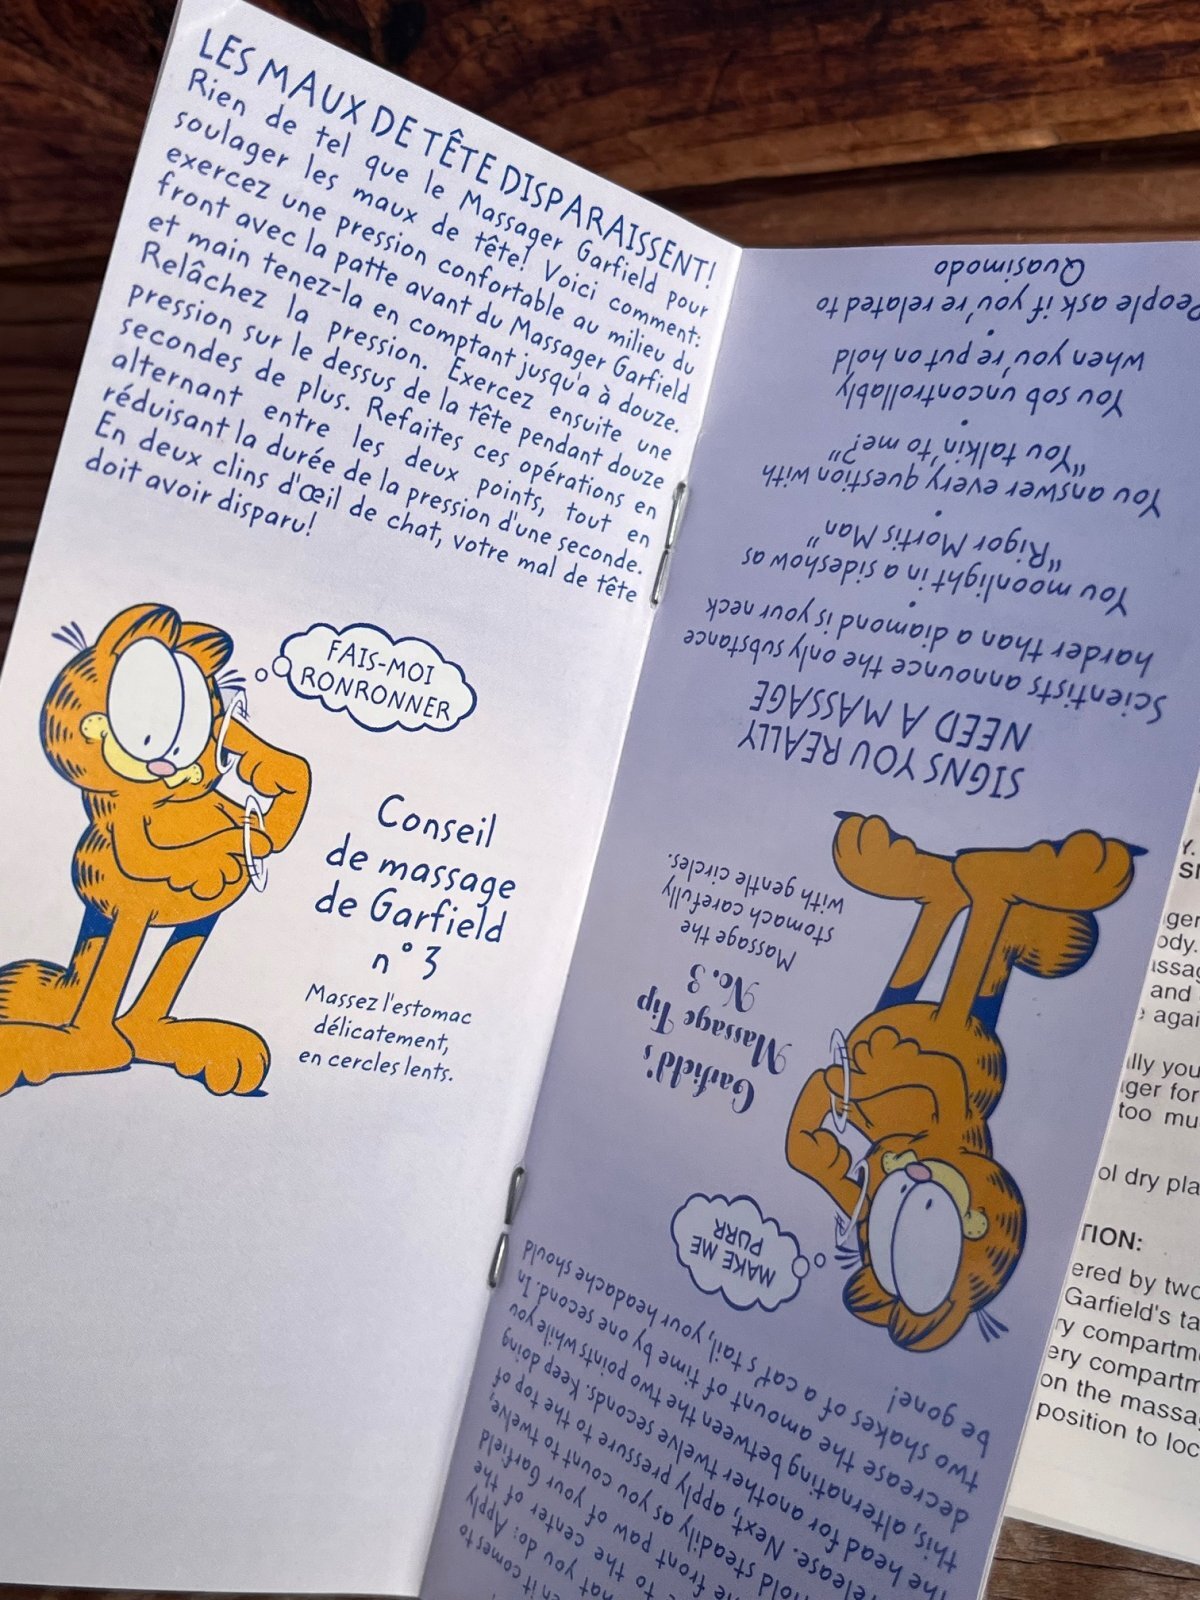 LES MAUX DE TÊTE DISPARAISSENT!
Rien de tel que le Massager Garfield pour
soulager les maux de tête! Voici comment:
exercez une pression confortable au milieu du
front avec la patte avant du Massager Garfield
et main tenez-la en comptant jusqu'a à douze.
Relâchez la pression. Exercez ensuite une
pression sur le dessus de la tête pendant douze
secondes de plus. Refaites ces opérations en
alternant entre les deux points, tout en
réduisant la durée de la pression d'une seconde.
En deux clins d'œil de chat, votre mal de tête
doit avoir disparu!
FAIS-MOI
RONRONNER
Conseil
de massage
de Garfield
n° 3
Massez l'estomac
délicatement,
en cercles lents.
en it comes to
hat you do: Apply
to the center of the
e front paw of your Garfield
hold steadily as you count to twelve,
release. Next, apply pressure to the top of
the head for another twelve seconds. Keep doing
this, alternating between the two points while you
decrease the amount of time by one second. In
two shakes of a cat's tail, your headache should
be gone!
MAKE ME
PURR
Garfield's
Massage Tip
No. 3
Massage the
stomach carefully
with gentle circles.
SIGNS YOU REALLY
NEED A MASSAGE
Scientists announce the only substance
harder than a diamond is your neck
•
You moonlight in a sideshow as
"Rigor Mortis Man"
•
You answer every question with
"You talkin' to me?"
•
You sob uncontrollably
when you're put on hold
•
People ask if you're related to
Quasimodo
Y.
ody.
and
e agai
lly you
ger for
too mu
ol dry pla
TION:
ered by two
Garfield's ta
ry compartm
ery compartm
on the massa
position to loc